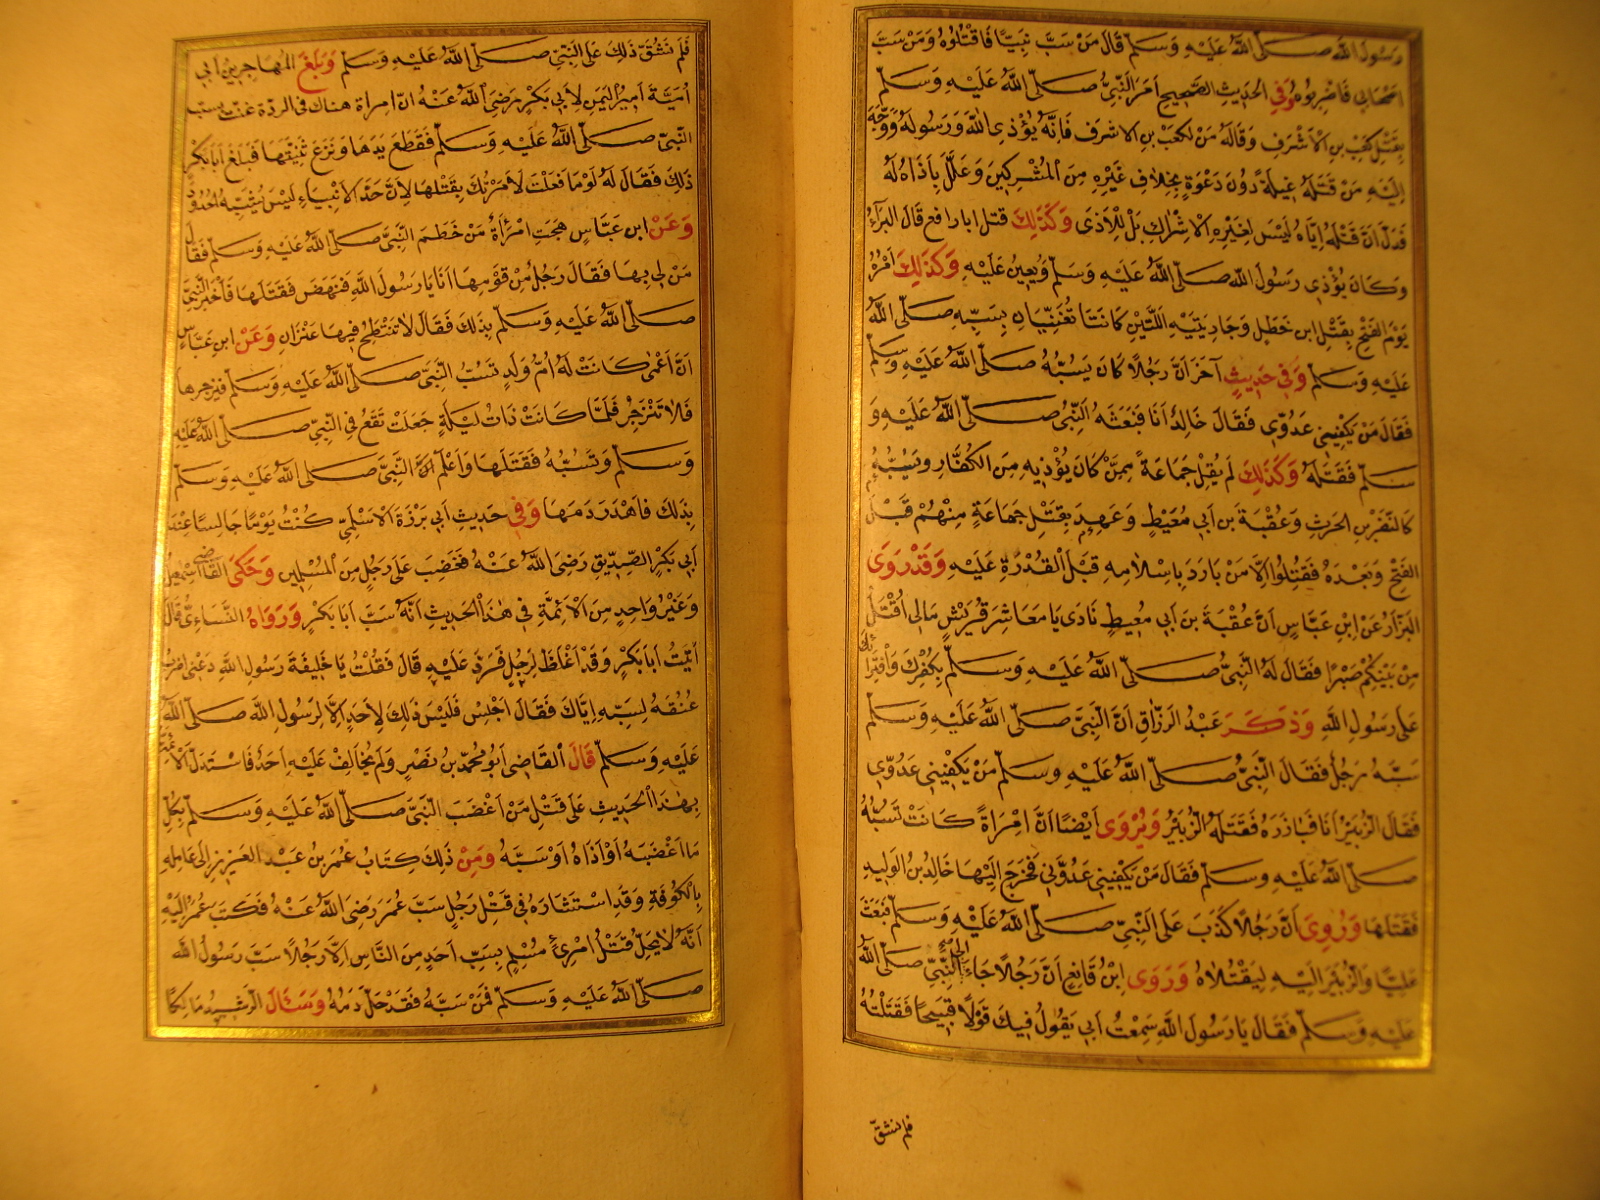 رَسُولَ اللهِ صَلَّى اللهُ عَلَيْهِ وَسَلَّمَ قَالَ مَنْ سَبَّ نَبِيًّا فَاقْتُلُوهُ وَمَنْ سَبَّ
اَصْحَابِي فَاضْرِبُوهُ وَفِي الْحَدِيثِ الصَّحِيحِ اَمَرَ النَّبِيُّ صَلَّى اللهُ عَلَيْهِ وَسَلَّمَ
بِقَتْلِ كَعْبِ بْنِ الْاَشْرَفِ وَقَالَهُ مَنْ لِكَعْبِ بْنِ الاشرف فَاِنَّهُ يُؤْذِي اللهَ وَرَسُولَهُ وَوَجَّهَ
اِلَيْهِ مَنْ قَتَلَهُ غِيلَةً دُونَ دَعْوَةٍ بِخِلَافِ غَيْرِهِ مِنَ الْمُشْرِكِينَ وَعَلَّلَ بِاَذَاهُ لَهُ
فَدَلَّ اَنَّ قَتْلَهُ اِيَّاهُ لَيْسَ لِغَيْرِهِ الْاِشْرَاكِ بَلْ لِلْاَذَى وَكَذَلِكَ قتل ابا رافع قَالَ الْبَرَاءُ
وَكَانَ يُؤْذِي رَسُولَ اللهِ صَلَّى اللهُ عَلَيْهِ وَسَلَّمَ وَيُعِينُ عَلَيْهِ وَكَذَلِكَ اَمْرُهُ
يَوْمَ الْفَتْحِ بِقَتْلِ ابْنِ خَطَلٍ وَجَارِيَتَيْهِ اللَّتَيْنِ كَانَتَا تُغَنِّيَانِ بِسَبِّهِ صَلَّى اللهُ
عَلَيْهِ وَسَلَّمَ وَفِي حَدِيثٍ آخَرَ اَنَّ رَجُلًا كَانَ يَسُبُّهُ صَلَّى اللهُ عَلَيْهِ وَسَلَّمَ
فَقَالَ مَنْ يَكْفِينِي عَدُوِّي فَقَالَ خَالِدٌ اَنَا فَبَعَثَهُ النَّبِيُّ صَلَّى اللهُ عَلَيْهِ وَ
سَلَّمَ فَقَتَلَهُ وَكَذَلِكَ لَمْ يُقِلْ جَمَاعَةً مِمَّنْ كَانَ يُؤْذِيهِ مِنَ الْكُفَّارِ وَيَسُبُّهُ
كَالنَّضْرِ بْنِ الْحَرِثِ وَعُقْبَةَ بْنِ اَبِي مُعَيْطٍ وَعَهِدَ بِقَتْلِ جَمَاعَةٍ مِنْهُمْ قَبْلَ
الفَتْحِ وَبَعْدَهُ فَقُتِلُوا اِلَّا مَنْ بَادَرَ بِاِسْلَامِهِ قَبْلَ الْقُدْرَةِ عَلَيْهِ وَقَدْ رَوَى
الْبَزَّارُ عَنِ ابْنِ عَبَّاسٍ اَنَّ عُقْبَةَ بْنَ اَبِي مُعَيْطٍ نَادَى يَا مَعَاشِرَ قُرَيْشٍ مَالِي اُقْتَلُ
مِنْ بَيْنِكُمْ صَبْرًا فَقَالَ لَهُ النَّبِيُّ صَلَّى اللهُ عَلَيْهِ وَسَلَّمَ بِكُفْرِكَ وَافْتِرَائِكَ
عَلَى رَسُولِ اللهِ وَذَكَرَ عَبْدُ الرَّزَّاقِ اَنَّ النَّبِيَّ صَلَّى اللهُ عَلَيْهِ وَسَلَّمَ
سَبَّهُ رَجُلٌ فَقَالَ النَّبِيُّ صَلَّى اللهُ عَلَيْهِ وسَلَّمَ مَنْ يَكْفِينِي عَدُوِّي
فَقَالَ الزُّبَيْرُ اَنَا فَبَارَزَهُ فَقَتَلَهُ الزُّبَيْرُ وَيُرْوَى اَيْضًا اَنَّ امْرَاَةً كَانَتْ تَسُبُّهُ
صَلَّى اللهُ عَلَيْهِ وسَلَّمَ فَقَالَ مَنْ يَكْفِينِي عَدُوَّتِي فَخَرَجَ اِلَيْهَا خَالِدُ بْنُ الوَلِيدِ
فَقَتَلَهَا وَرُوِيَ اَنَّ رَجُلًا كَذَبَ عَلَى النَّبِيِّ صَلَّى اللهُ عَلَيْهِ وَسَلَّمَ فَبَعَثَ
عَلِيًّا وَالزُّبَيْرَ اِلَيْهِ لِيَقْتُلَاهُ وَرَوَى ابْنُ قَانِعٍ اَنَّ رَجُلًا جَاءَ اِلَى النَّبِيِّ صَلَّى اللهُ
عَلَيْهِ وَسَلَّمَ فَقَالَ يَا رَسُولَ اللهِ سَمِعْتُ اَبِي يَقُولُ فِيكَ قَوْلًا قَبِيحًا فَقَتَلْتُهُ
فلم نشقّ
فَلَمْ نَشُقَّ ذَلِكَ عَلَى النَّبِيِّ صَلَّى اللهُ عَلَيْهِ وَسَلَّمَ وَبَلَغَ الْمُهَاجِرِينَ اَبِي
اُمَيَّةَ اَمِيرُ الْيَمَنِ لِاَبِي بَكْرٍ رَضِيَ اللهُ عَنْهُ انّ امراة هناك فى الردة غنت بسب
النَّبِيِّ صَلَّى اللهُ عَلَيْهِ وَسَلَّمَ فَقَطَعَ يَدَهَا وَنَزَعَ ثَنِيَّتَهَا فَبَلَغَ اَبَا بَكْرٍ
ذَلِكَ فَقَالَ لَهُ لَوْ مَا فَعَلْتَ لَاَمَرْتُكَ بِقَتْلِهَا لِاَنَّ حَدَّ الْاَنْبِيَاءِ لَيْسَ يُشْبِهُ الْحُدُودَ
وَعَنْ ابْنِ عَبَّاسٍ هَجَتِ امْرَاَةٌ مَنْ خَطَمَ النَّبِيَّ صَلَّى اللهُ عَلَيْهِ وَسَلَّمَ فَقَالَ
مَنْ لِي بِهَا فَقَالَ رَجُلٌ مِنْ قَوْمِهَا اَنَا يَا رَسُولَ اللهِ فَنَهَضَ فَقَتَلَهَا فَاَخْبَرَ النَّبِيَّ
صَلَّى اللهُ عَلَيْهِ وَسَلَّمَ بِذَلِكَ فَقَالَ لَا تَنْتَطِحُ فِيهَا عَنْزَانِ وَعَنْ ابن عَبَّاسٍ
اَنَّ اَعْمَى كَانَتْ لَهُ اُمُّ وَلَدٍ تَسُبُّ النَّبِيَّ صَلَّى اللهُ عَلَيْهِ وَسَلَّمَ فيزجرها
فَلَا تَنْزَجِرُ فَلَمَّا كَانَتْ ذَاتَ لَيْلَةٍ جَعَلَتْ تَقَعُ فِي النَّبِيِّ صَلَّى اللهُ عَلَيْهِ
وَسَلَّمَ وَتَسُبُّهُ فَقَتَلَهَا وَاَعْلَمَ النَّبِيَّ صَلَّى اللهُ عَلَيْهِ وَسَلَّمَ
بِذَلِكَ فَاَهْدَرَ دَمَهَا وَفِي حَدِيثِ اَبِي بَرْزَةَ الْاَسْلَمِيِّ كُنْتُ يَوْمًا جَالِسًا عِنْدَ
اَبِي بَكْرٍ الصِّدِّيقِ رَضِيَ اللهُ عَنْهُ فَغَضِبَ عَلَى رَجُلٍ مِنَ الْمُسْلِمِينَ وَحَكَى القَاضِي اِسْمَعِيلُ
وَغَيْرُ وَاحِدٍ مِنَ الْاَئِمَّةِ فِي هَذَا الْحَدِيثِ اَنَّهُ سَبَّ اَبَا بَكْرٍ وَرَوَاهُ النَّسَائِيُّ قَالَ
اَتَيْتُ اَبَا بَكْرٍ وَقَدْ اَغْلَظَ لِرَجُلٍ فَرَدَّ عَلَيْهِ قَالَ فَقُلْتُ يَا خَلِيفَةَ رَسُولِ اللهِ دَعْنِي اضْرِبْ
عُنُقَهُ لِسَبِّهِ اِيَّاكَ فَقَالَ اجْلِسْ فَلَيْسَ ذَلِكَ لِاَحَدٍ اِلَّا لِرَسُولِ اللهِ صَلَّى اللهُ
عَلَيْهِ وَسَلَّمَ قَالَ الْقَاضِي اَبُو مُحَمَّدِ بْنُ نَصْرٍ وَلَمْ يُخَالِفْ عَلَيْهِ اَحَدٌ فَاسْتَدَلَّ الْاَئِمَّةُ
بِهَذَا الْحَدِيثِ عَلَى قَتْلِ مَنْ اَغْضَبَ النَّبِيَّ صَلَّى اللهُ عَلَيْهِ وَسَلَّمَ بِكُلِّ
مَا اَغْضَبَهُ اَوْ اَذَاهُ اَوْ سَبَّهُ وَمِنْ ذَلِكَ كِتَابُ عُمَرَ بْنِ عَبْدِ العَزِيزِ اِلَى عَامِلِهِ
بِالْكُوفَةِ وَقَدِ اسْتَشَارَهُ فِي قَتْلِ رَجُلٍ سَبَّ عُمَرَ رَضِيَ اللهُ عَنْهُ فَكَتَبَ عُمَرُ اِلَيْهِ
اَنَّهُ لَا يَحِلُّ قَتْلُ امْرِئٍ مُسْلِمٍ بِسَبِّ اَحَدٍ مِنَ النَّاسِ اِلَّا رَجُلًا سَبَّ رَسُولَ اللهِ
صَلَّى اللهُ عَلَيْهِ وَسَلَّمَ فَمَنْ سَبَّهُ فَقَدْ حَلَّ دَمُهُ وَسَاَلَ الرَّشِيدُ مَالِكًا